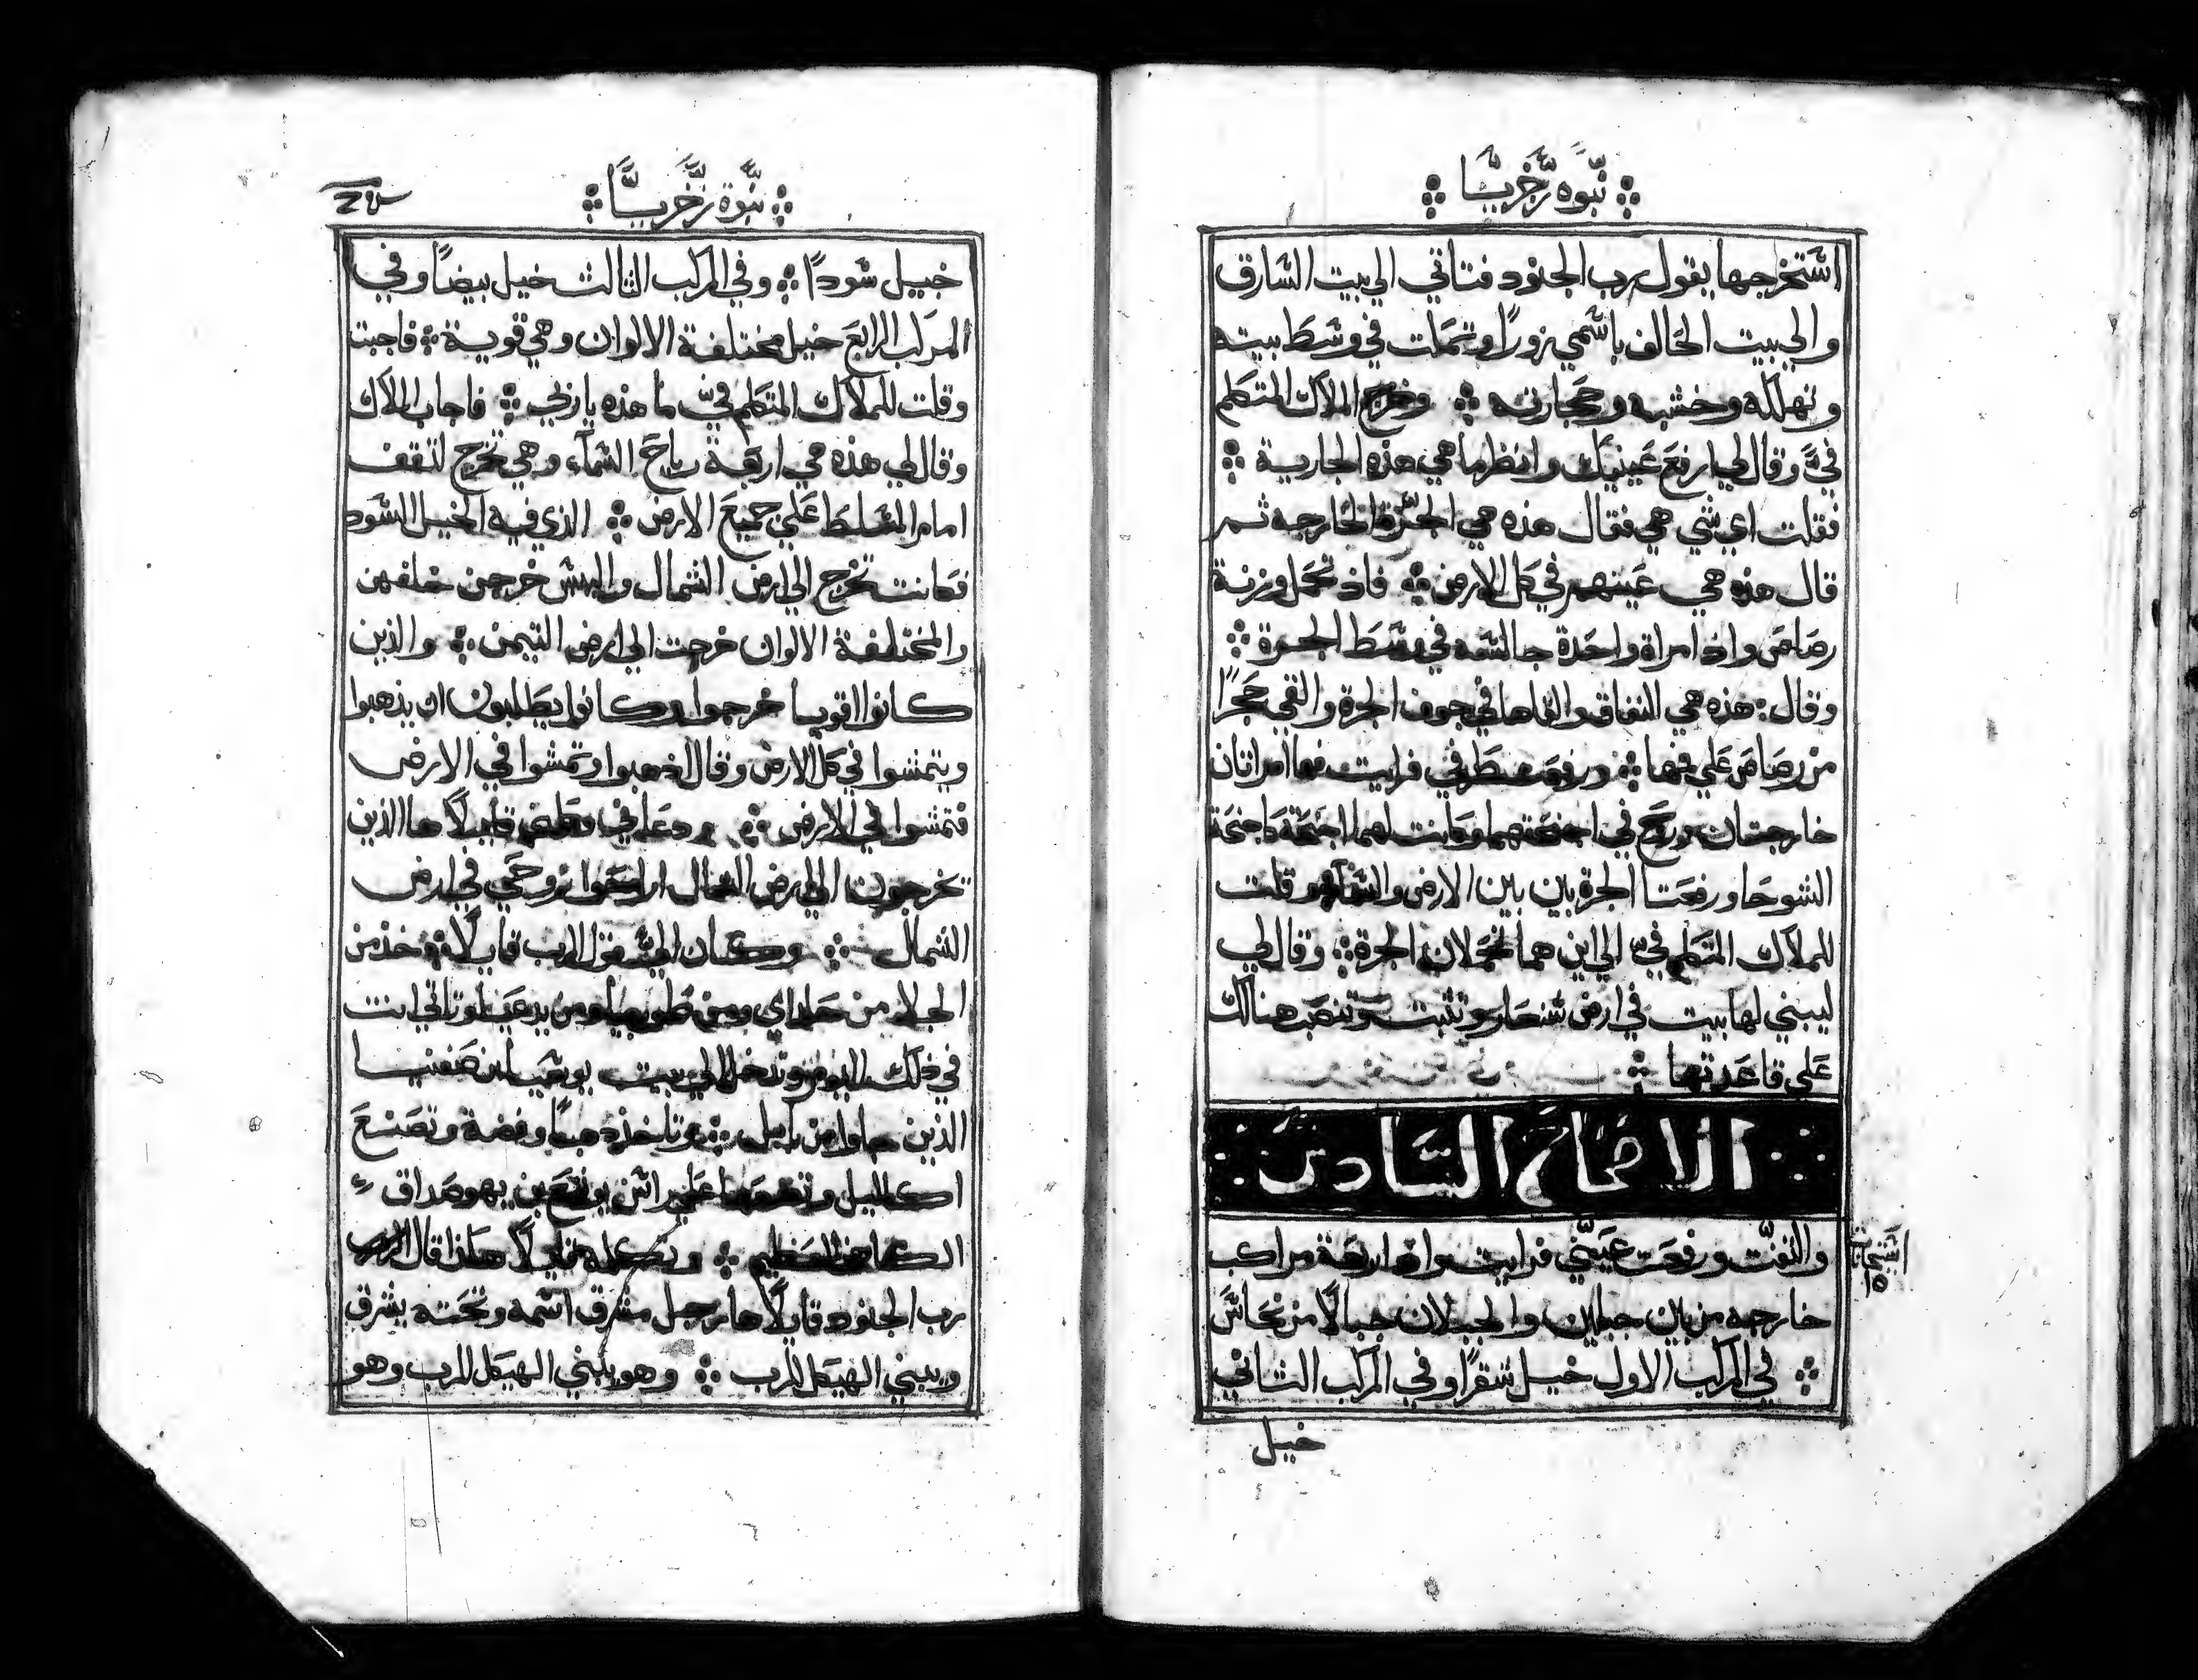 نبوه زخريا
استخرجها يقول رب الجنود فتاتي الي بيت السارق
والي بيت الحالف باسمي زورًا وتمكت في وسط بيته
وتهلكه وخشبه وحجارته وخرج الملاك المتكلم
فيَّ وقال لي ارفع عينيك وانظر ما هي هذه الجارية
فقلت اي شي هي فقال هذه هي الجرة الخارجه ثم
قال هذه هي عينهم في كل الارض فاذ تحمل وزنة
رصاص واذ امراة واحدة جالسه في وسط الجرة
وقال هذه هي النفاق والقاها في جوف الجرة والقي حجرًا
من رصاص علي فمها ورفعت نظري فرايت فها امراتان
خارجتان وريح في اجنحتهما وكانت لهما اجنحة كاجنحة
الشوحا ورفعتا الجرة بين بين الارض والسما وقلت
للملاك المتكلم فيّ الي اين هما تحملان الجرة وقال لي
ليبني لها بيت في ارض شنعار وتثبت وتنصب هنالك
علي قاعدتها
الاصحاح السادس
والتفتّ ورفعت عينيّ فرايت واذا اربعة مراكب
خارجه من بين جبلين والجبلان جبالًا من نحاس
في المركب الاول خيل شقرًا وفي المركب الثاني
خيل
نبوة زخريا
خيل سودًا وفي المركب الثالث خيل بيضًا وفي
المركب الرابع خيل مختلفة الالوان وهي قوية فاجبت
وقلت للملاك المتكلم فيّ ما هذه يا ربي فاجاب الملاك
وقال لي هذه هي اربعة رياح السمآء وهي تخرج لتقف
امام المسلط علي جميع الارض الذي فيه الخيل السود
فكانت تخرج الي ارض الشمال والبيض خرجن خلفهن
والمختلفة الالوان خرجت الي ارض التيمن والذين
كانوا اقويا خرجوا وكانوا يطلبون ان يذهبوا
ويتمشوا في كل الارض وقال اذهبوا وتمشوا في الارض
فتمشوا في الارض ودعاني قايلًا ها الذين
يخرجون الي ارض الشمال اراحوا روحي في ارض
الشمال وكان اليّ قول الرب قايلًا خذ من
الجلا من حلداي ومن طوبيا ومن يدعيا وتاتي انت
في ذلك اليوم وتدخل الي بيت يوشيا ابن صفنيا
الذين جاوا من بابل وتاخذ دهبًا وفضة وتصنع
اكاليل وتضعها علي راس يوشع بن يهوصداق
الكاهن العظيم وتكلمه قايلًا هكذا قال الرب
رب الجنود قايلًا ها رجل مشرق اسمه وتحته يشرق
ويبني الهيكل للرب وهو يبني الهيكل للرب وهو